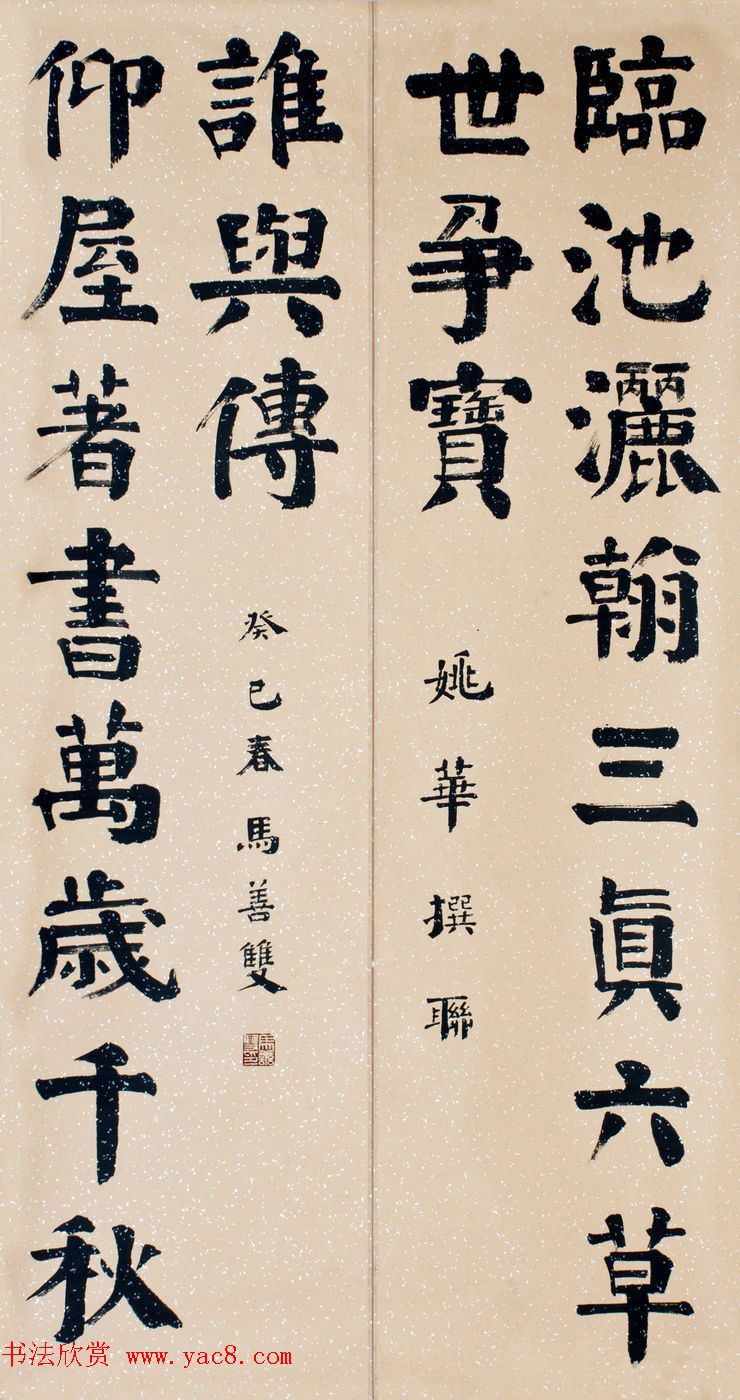 臨池灑翰三眞六草
世爭寶
姚華撰聯
仰屋著書萬歲千秋
誰與傳
癸巳春馬善雙
书法欣赏 www.yac8.com